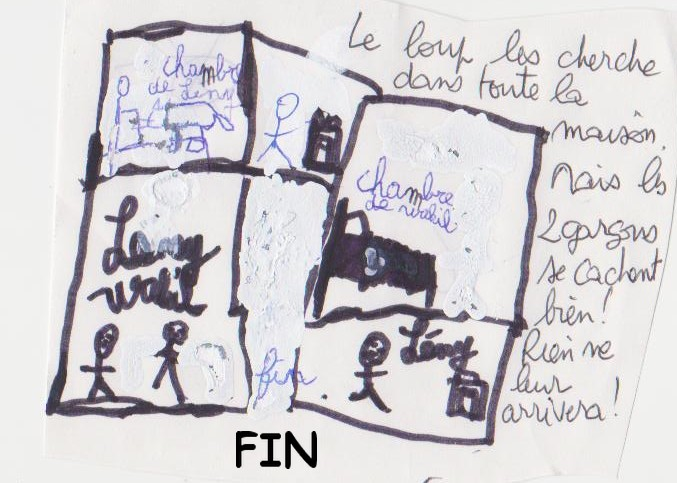 Le loup les cherche
dans toute la
maison.
Mais les
2 garçons
se cachent
bien!
Rien ne
leur
arrivera!
chambre
de Lény
chambre
de walil
Lény
walil
Lény
fin
FIN